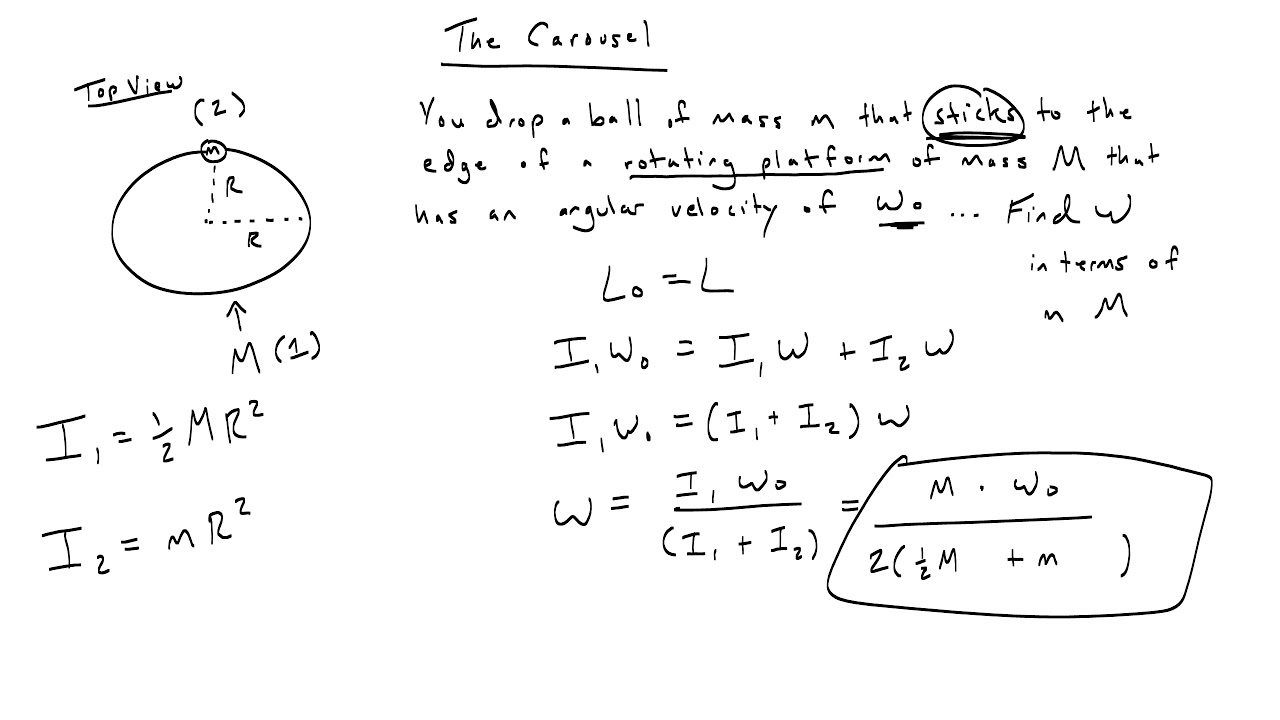 The Carousel
Top View
(2)
m
R
R
M (1)
You drop a ball of mass m that sticks to the
edge of a rotating platform of mass M that
has an angular velocity of ω₀ ... Find ω
in terms of
m M
L₀ = L
I₁ω₀ = I₁ω + I₂ω
I₁ω₀ = (I₁ + I₂) ω
ω = I₁ ω₀ / (I₁ + I₂) = M · ω₀ / 2(½M + m)
I₁ = ½MR²
I₂ = mR²